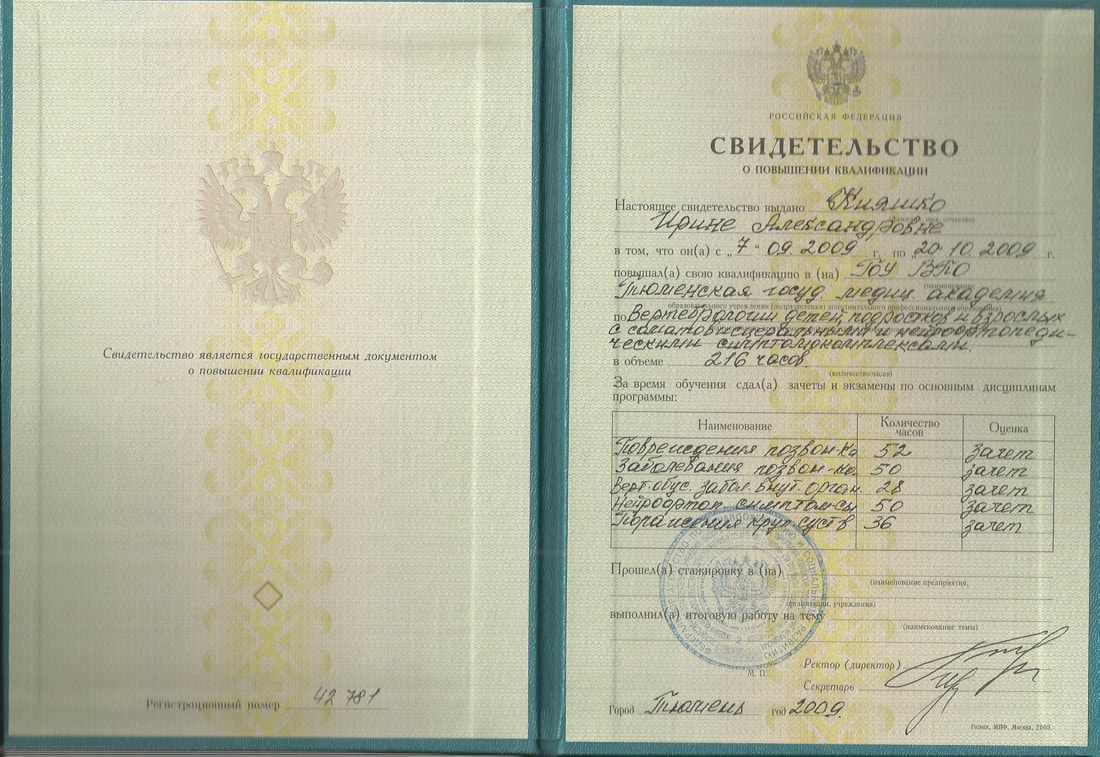 Свидетельство является государственным документом
о повышении квалификации
Регистрационный номер 42 781
РОССИЙСКАЯ ФЕДЕРАЦИЯ
СВИДЕТЕЛЬСТВО
О ПОВЫШЕНИИ КВАЛИФИКАЦИИ
Настоящее свидетельство выдано Кияшко
(фамилия, имя, отчество)
Ирине Александровне
в том, что он(а) с „7" 09. 2009 г. по „20" 10. 2009 г.
повышал(а) свою квалификацию в (на) ГОУ ВПО
(наименование
Тюменская госуд. медиц. академия
образовательного учреждения (подразделения) дополнительного профессионального образования)
по Вертебрологии детей, подростков и взрослых
с соматовисцеральными и нейроортопеди-
ческими симптомокомплексами.
в объеме 216 часов.
(количество часов)
За время обучения сдал(а) зачеты и экзамены по основным дисциплинам
программы:
Наименование Количество часов Оценка
Повреждения позвон-ка 52 зачет
Заболевания позвон-ка 50 зачет
Верт. обус. забол. внут. орган. 28 зачет
Нейроортоп. симптом-сы 50 зачет
Поражения круп. суст-в 36 зачет
Прошел(а) стажировку в (на)
(наименование предприятия,
организации, учреждения)
выполнил(а) итоговую работу на тему
(наименование темы)
М. П.
Ректор (директор)
Секретарь
Город Тюмень год 2009.
Гознак, МПФ, Москва, 2009.